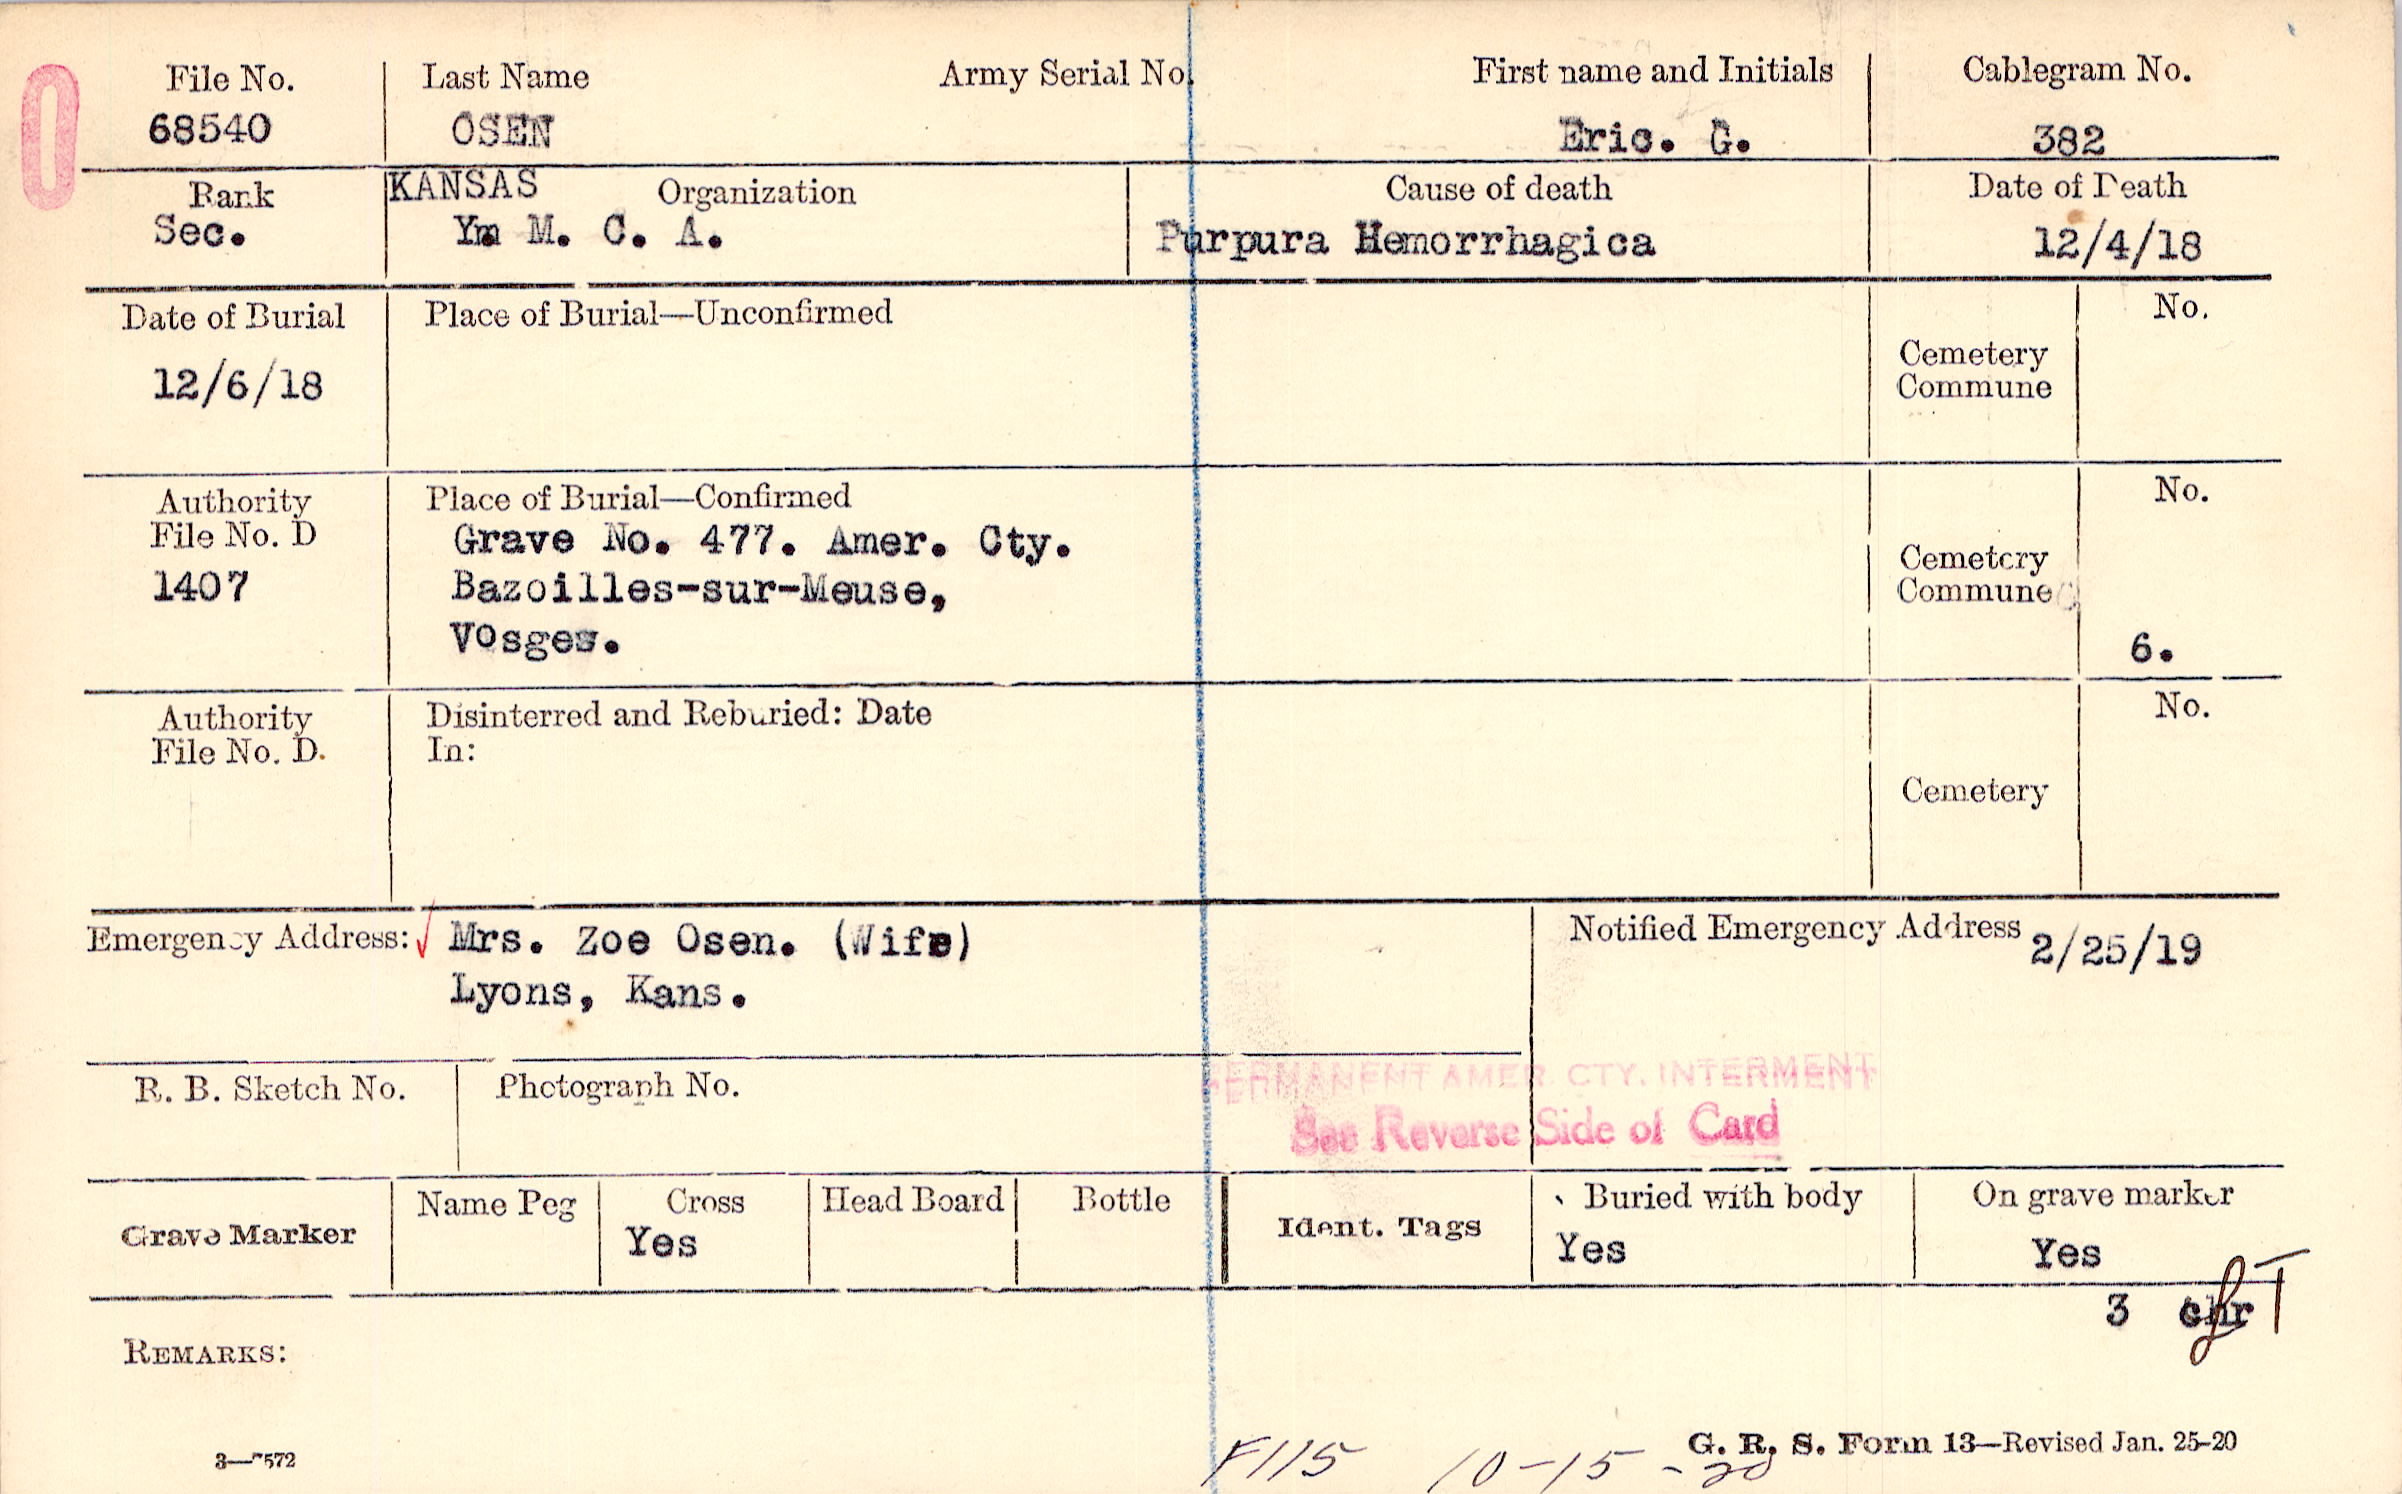 0
File No. Last Name Army Serial No. First name and Initials Cablegram No.
68540 OSEN Eric. G. 382
Rank KANSAS Organization Cause of death Date of Death
Sec. Ym M. C. A. Purpura Hemorrhagica 12/4/18
Date of Burial Place of Burial—Unconfirmed No.
12/6/18 Cemetery
Commune
Authority Place of Burial—Confirmed No.
File No. D Grave No. 477. Amer. Cty. Cemetery
1407 Bazoilles-sur-Meuse, Commune
Vosges. 6.
Authority Disinterred and Reburied: Date No.
File No. D. In:
Cemetery
Emergency Address: Mrs. Zoe Osen. (Wife) Notified Emergency Address 2/25/19
Lyons, Kans.
R. B. Sketch No. Photograph No. PERMANENT AMER. CTY. INTERMENT
See Reverse Side of Card
Grave Marker Name Peg Cross Head Board Bottle Ident. Tags Buried with body On grave marker
Yes Yes Yes
3 chr
REMARKS:
3—7572 F115 10-15-20 G. R. S. Form 13—Revised Jan. 25-20